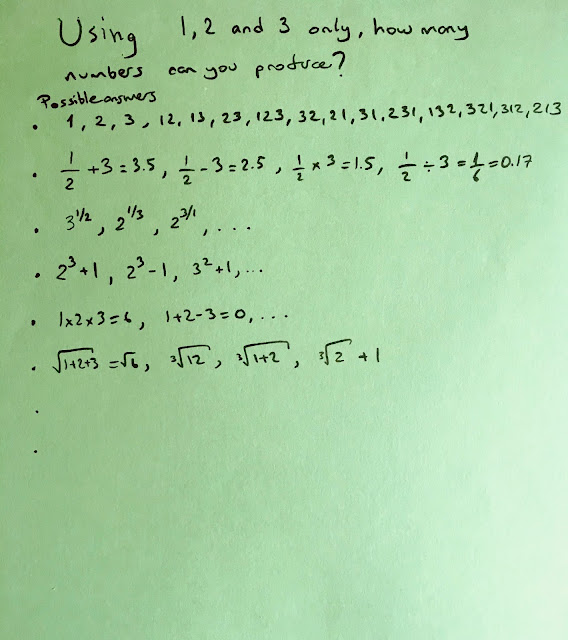 Using 1, 2 and 3 only, how many
numbers can you produce?
Possible answers
• 1, 2, 3, 12, 13, 23, 123, 32, 21, 31, 231, 132, 321, 312, 213
• 1/2 + 3 = 3.5, 1/2 - 3 = 2.5, 1/2 × 3 = 1.5, 1/2 ÷ 3 = 1/6 = 0.17
• 3^1/2, 2^1/3, 2^3/1, ...
• 2³+1, 2³-1, 3²+1, ...
• 1x2x3=6, 1+2-3=0, ...
• √(1+2+3) = √6, ³√12, ³√(1+2), ³√2 + 1
•
•